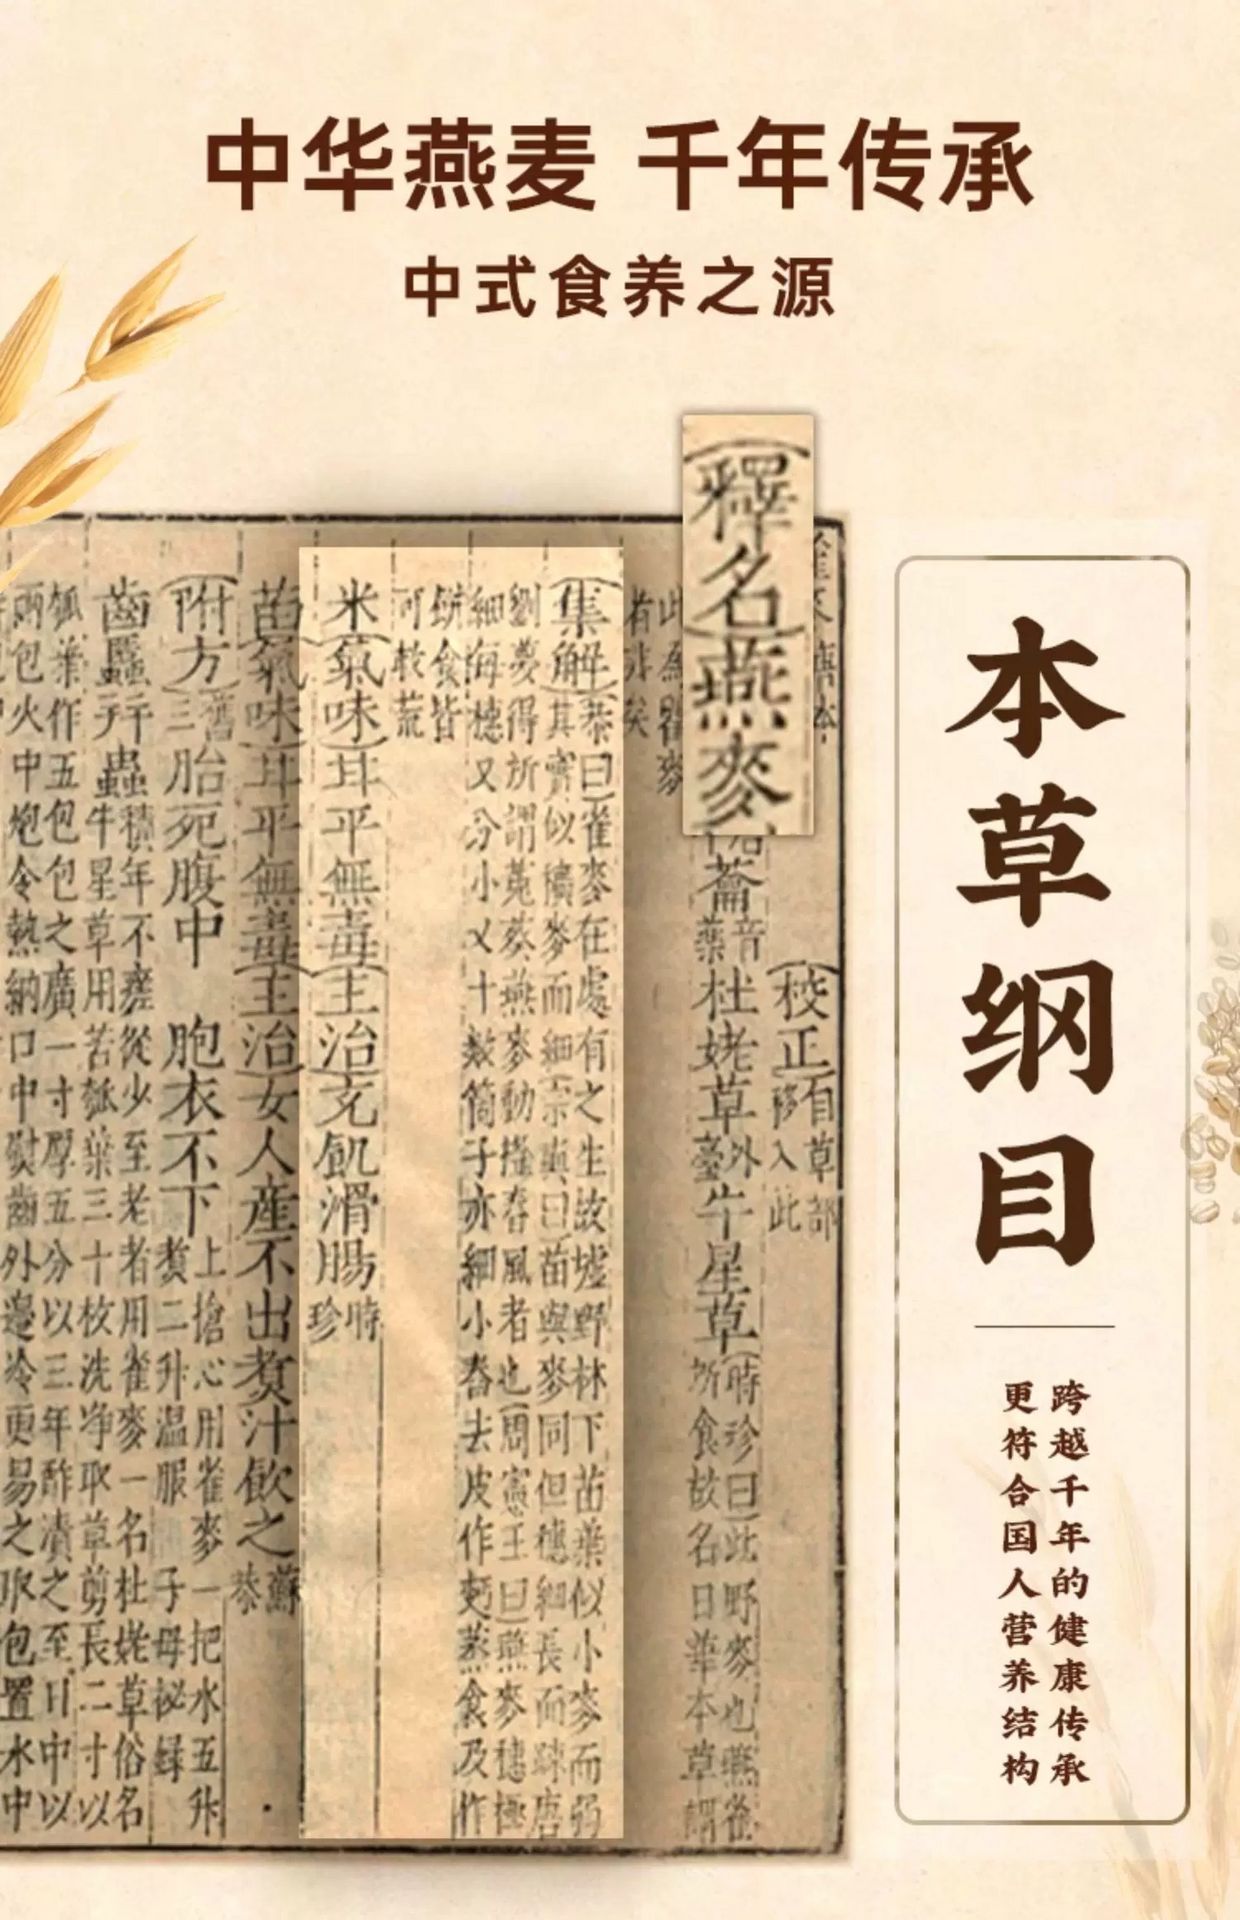 中华燕麦 千年传承
中式食养之源
本草纲目
跨越千年的健康传承
更符合国人营养结构
釋名燕麥
校正自草部
移入此
蘥音
藥
杜姥草外
臺
牛星草時珍曰此野麥也燕雀
所食故名日華本草謂
此為瞿麥
者非矣
集解恭曰雀麥在處有之生故墟野林下苗葉似小麥而弱
其實似穬麥而細宗奭曰苗與麥同但穗細長而疎唐
劉夢得所謂菟葵燕麥動搖春風者也周憲王曰燕麥穗極
細每穗又分小叉十數箇子亦細小舂去皮作麪蒸食及作
餅食皆
可救荒
米氣味甘平無毒主治充飢滑腸時
珍
苗氣味甘平無毒主治女人產不出煮汁飲之蘇
恭
附方舊
三
胎死腹中 胞衣不下上搶心用雀麥一把水五升
煮二升温服 子母祕録
齒䘌并蟲積年不瘥從少至老者用雀麥一名杜姥草俗名
牛星草用苦瓠葉三十枚洗净取草剪長二寸以
瓠葉作五包包之廣一寸厚五分以三年酢漬之至日中以
兩包火中炮令熱納口中熨齒外邊冷更易之取包置水中